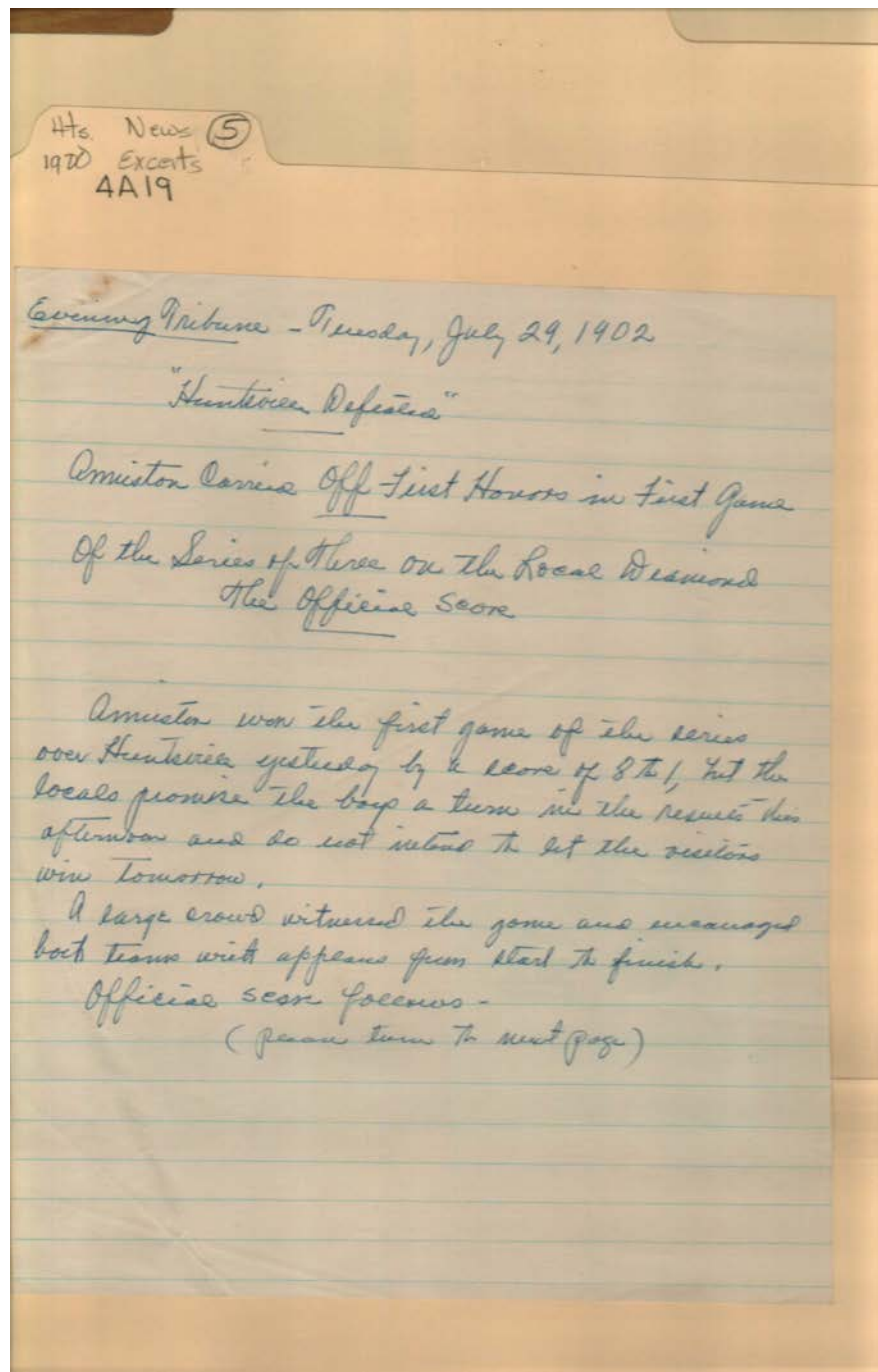 Hts. News 5
1970 Excerts
4A19
Evening Tribune - Tuesday, July 29, 1902
"Huntsville Defeated"
Anniston Carries Off First Honors in First Game
Of the Series of Three on the Local Diamond
The Official Score
Anniston won the first game of the series
over Huntsville yesterday by a score of 8 to 1, but the
locals promise the boys a turn in the results this
afternoon and do not intend to let the visitors
win tomorrow.
A large crowd witnessed the game and encouraged
both teams with applaus from start to finish.
Official score follows -
(please turn to next page)